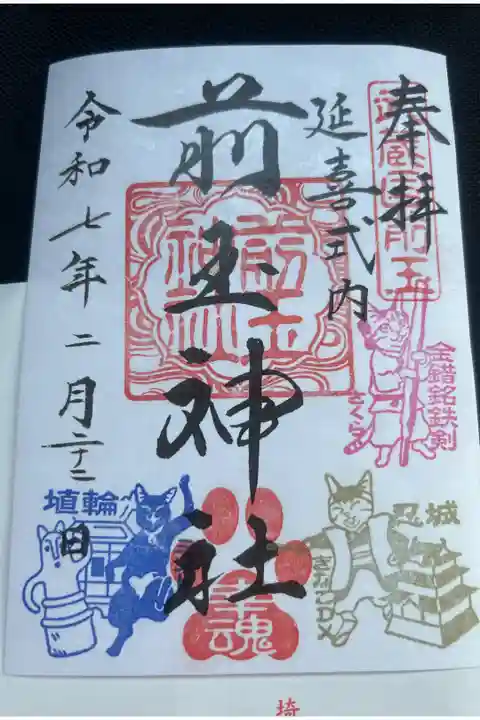 奉拝
武蔵国前玉
延喜式内
前玉神社
前玉神社
令和七年二月二十二日
金錯銘鉄剣
さくら
忍城
埴輪
幸魂
埼